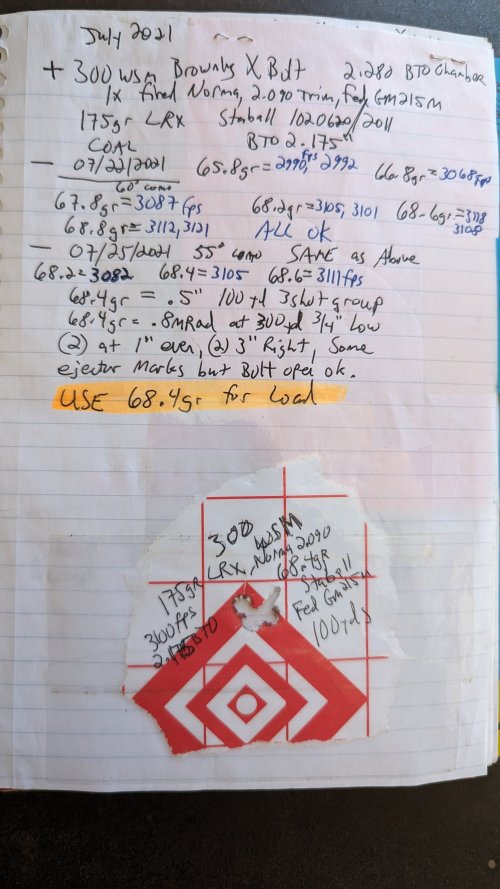 July 2021
+ 300 WSM Browning X Bolt 2.280 BTO Chamber
1x fired Norma, 2.090 Trim, Fed GM215M
175gr LRX Staball 1020620/2011
COAL BTO 2.175"
- 07/22/2021 65.8gr = 2990, fps 2992 66.8gr = 3068 fps
60°
67.8gr = 3087 fps 68.2gr = 3105, 3101 68.6gr = 3118
3108
68.8gr = 3112, 3121 ALL OK
- 07/25/2021 55° SAME as Above
68.2 = 3082 68.4 = 3105 68.6 = 3111 fps
68.4gr = .5" 100 yd 3 shot group
68.4gr = .8 MRad at 300yd 3/4" Low
(2) at 1" even, (2) 3" Right, Some
ejector Marks but Bolt open ok.
USE 68.4gr for Load
300 WSM
175gr LRX, Norma 2.090
68.4gr
Staball
Fed GM215M
100yds
3100 fps
BTO